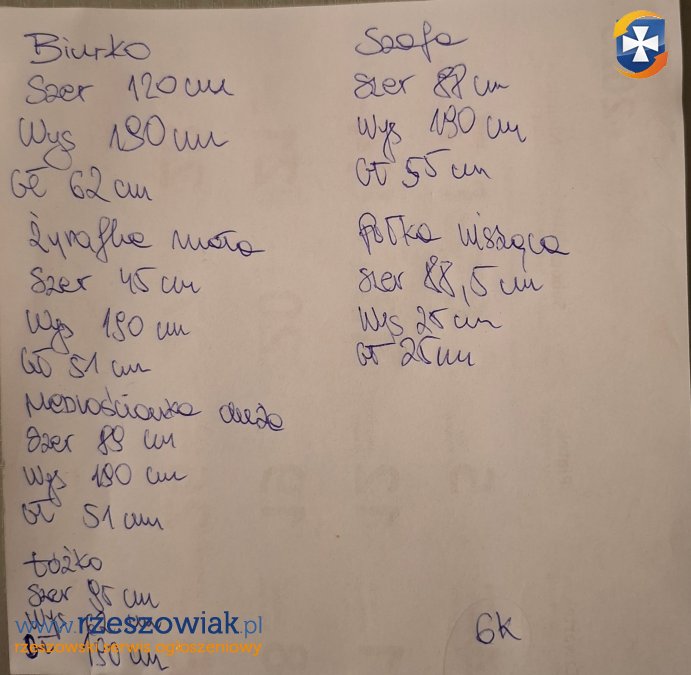 Biurko
Szer 120 cm
Wys 190 cm
Gł 62 cm
Żyrafka mała
Szer 45 cm
Wys 190 cm
Gł 51 cm
duża
Szer 89 cm
Wys 190 cm
Gł 51 cm
Łóżko
Szer 95 cm
Wys
190 cm
Szafa
Szer 88 cm
Wys 190 cm
Gł 55 cm
Półka wisząca
Szer 88,5 cm
Wys 25 cm
Gł 25 cm
6K
www.rzeszowiak.pl
rzeszowski serwis ogłoszeniowy